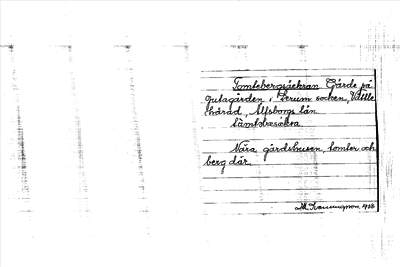 Tomtebergsåkran Gärde på
Gutagården i Perum socken, Välle
härad, Älfsborgs län
tåmtabæsåkra
Nära gårdshusen, tomter och
berg där
1928